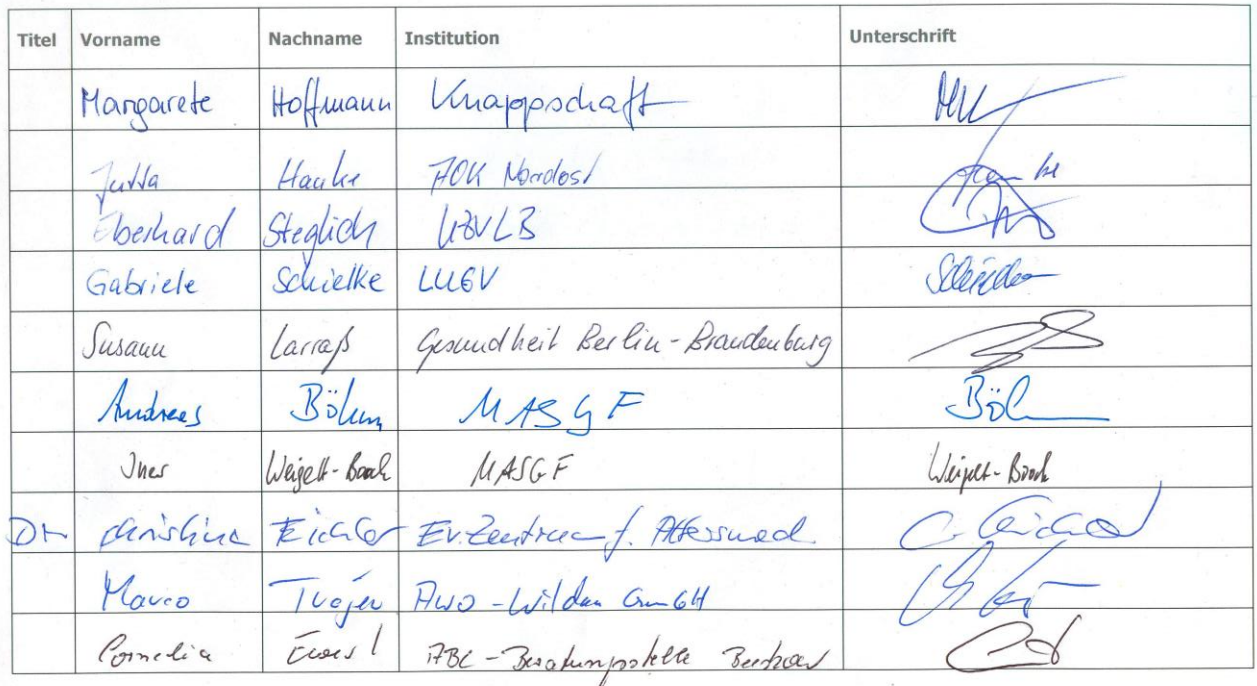 Titel Vorname Nachname Institution Unterschrift
Margarete Hoffmann Knappschaft
Jutta Hauke AOK Nordost Hauke
Eberhard Steglich KBVLB
Gabriele Schielke LUGV
Susann Larraß Gesundheit Berlin-Brandenburg
Andreas Böhm MASGF Böhm
Ines Weigelt-Boock MASGF Weigelt-Boock
Dr Christina Eichler Ev. Zentrum f. Altersmed.
Marco AWO - Wildau GmbH
Cornelia ABC - Beratungsstelle